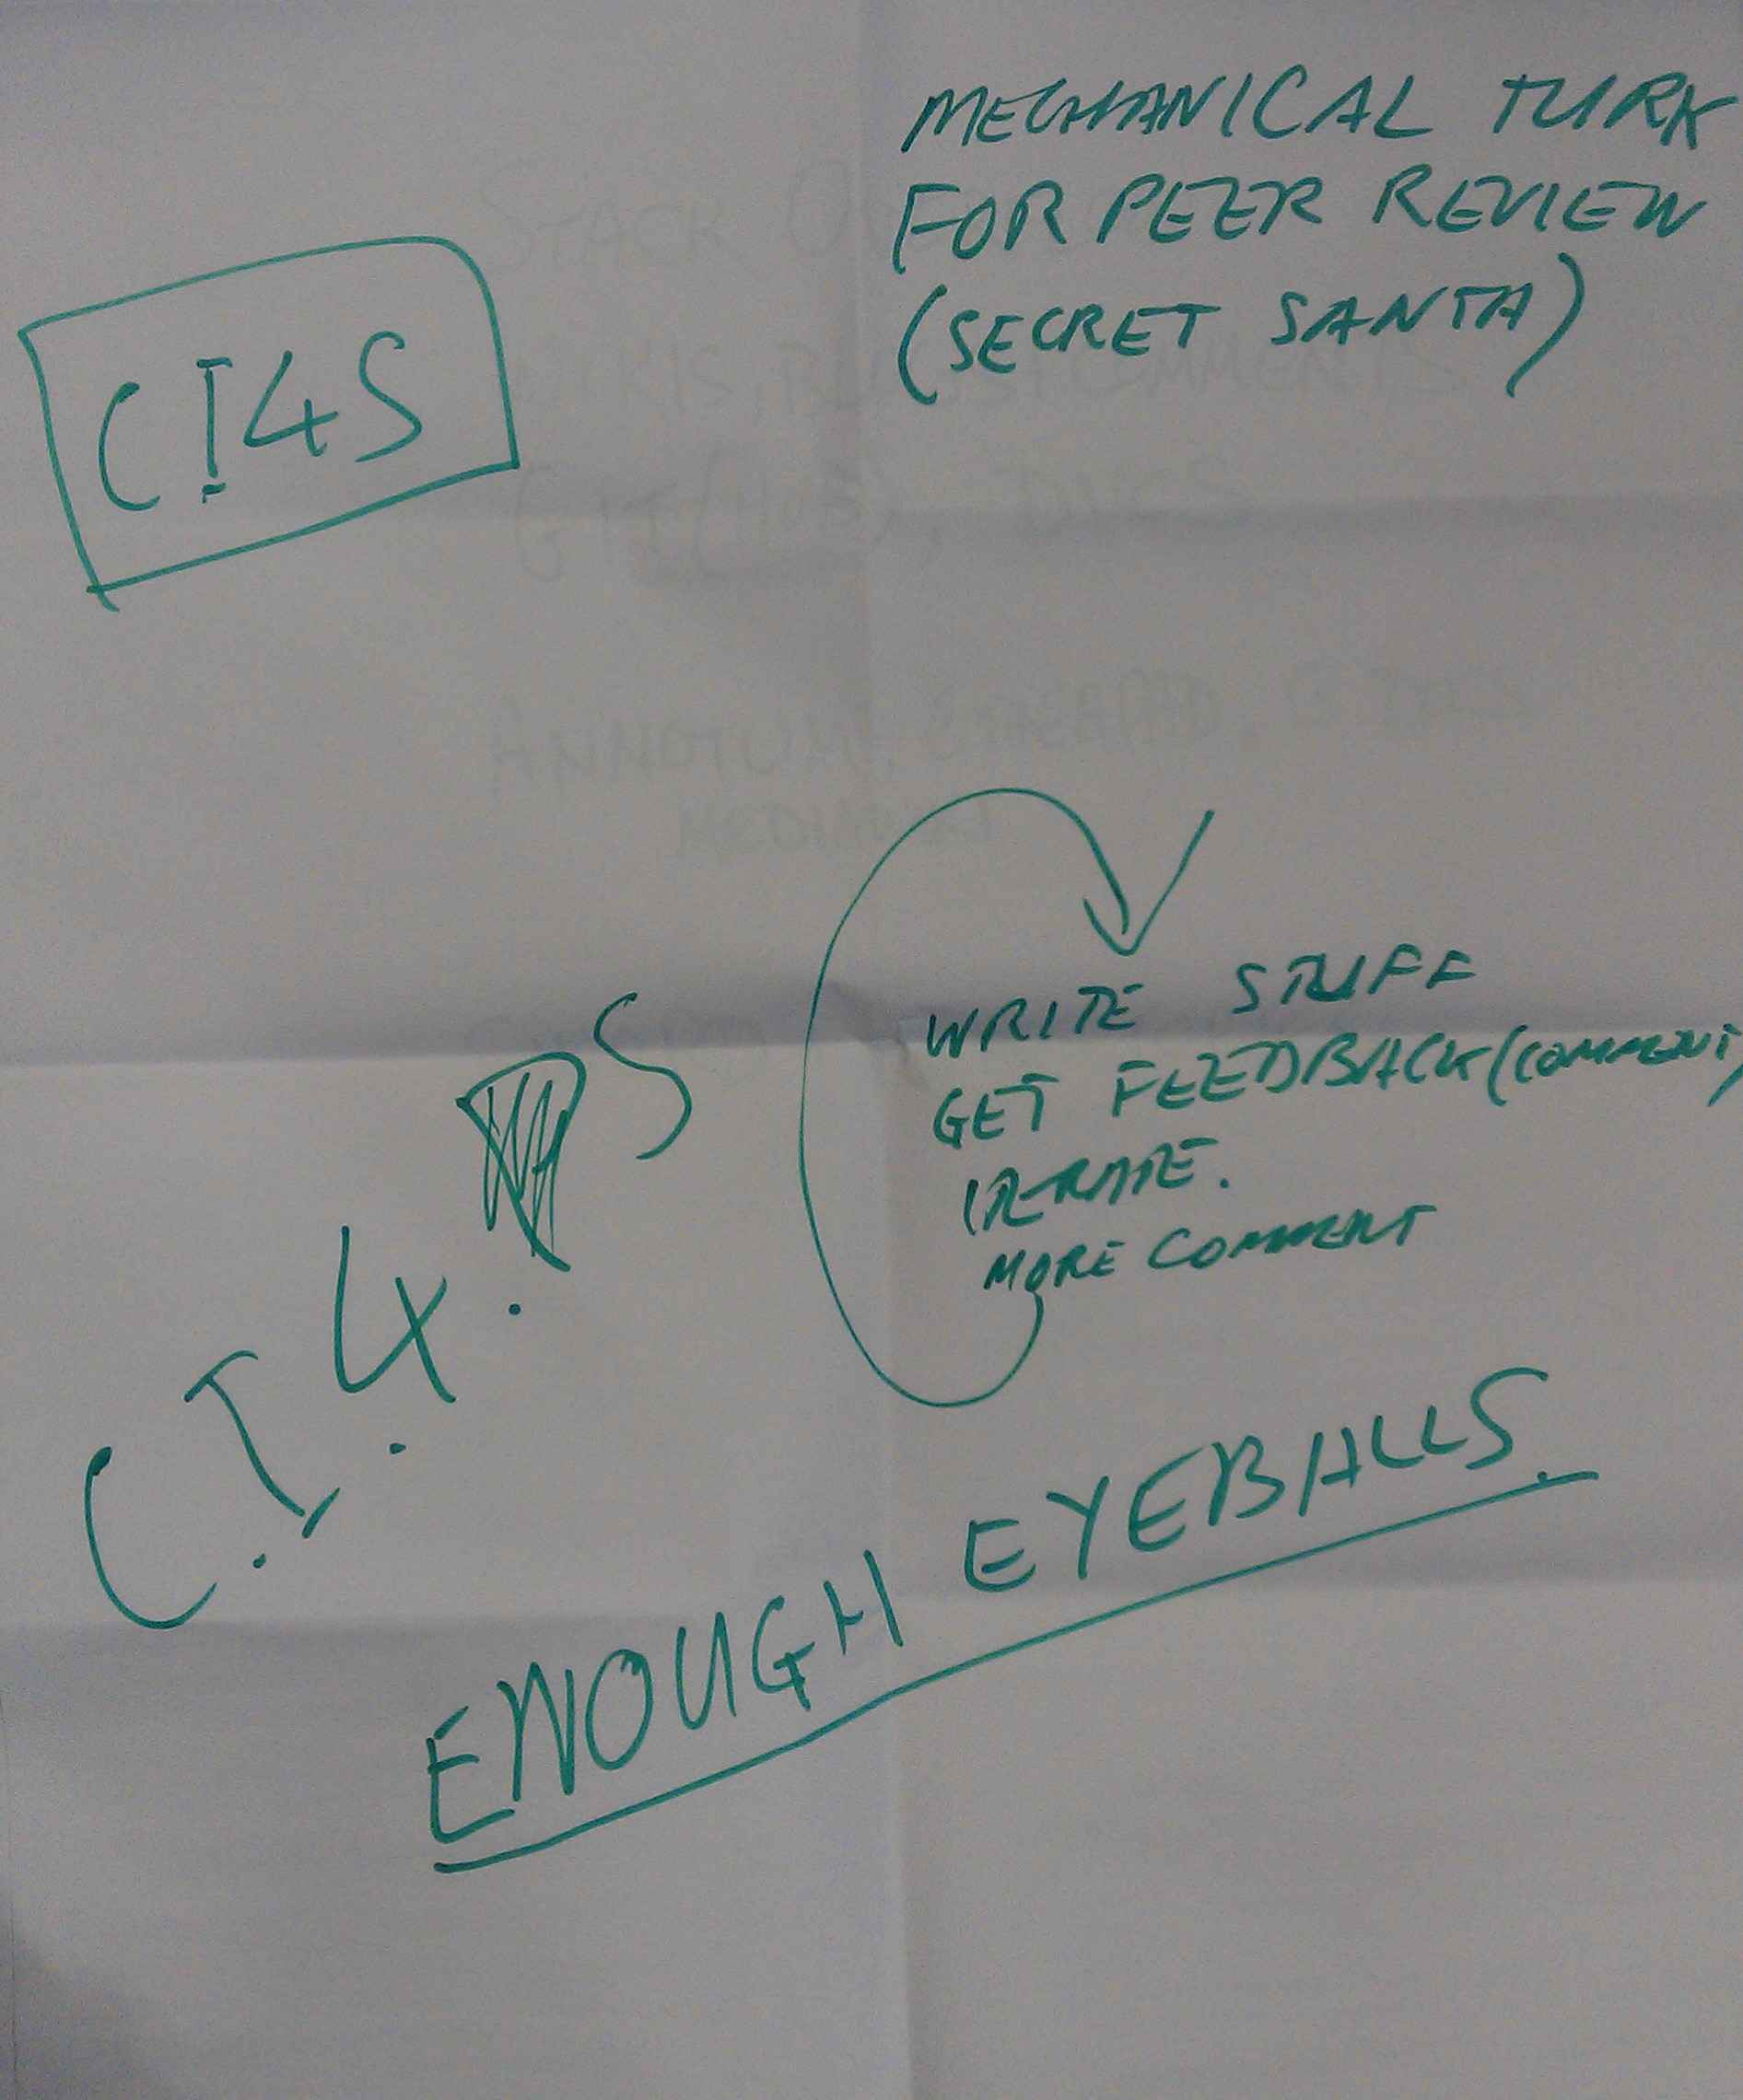 MECHANICAL TURK
FOR PEER REVIEW
(SECRET SANTA)
CI4S
WRITE STUFF
GET FEEDBACK (COMMENT)
ITERATE.
MORE COMMENT
C.I.4.S
ENOUGH EYEBALLS